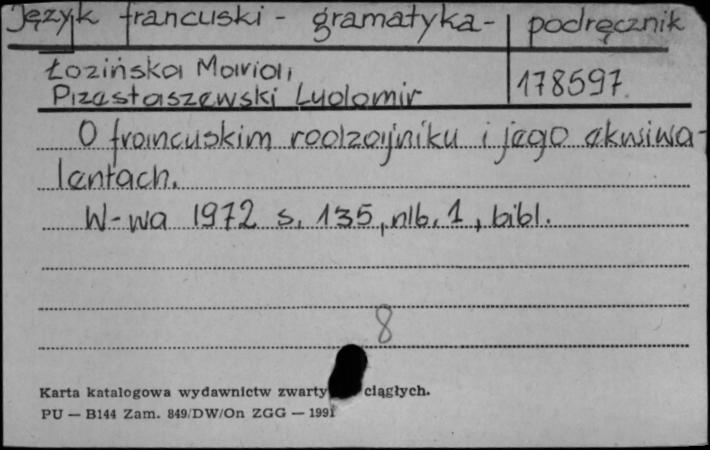 Język francuski - gramatyka - podręcznik
Łozińska Maria,
Przestaszewski Ludomir
178597.
O francuskim rodzajniku i jego ekwiwa-
lentach.
W-wa 1972 s. 135, nlb. 1, bibl.
8
Karta katalogowa wydawnictw zwarty ciągłych.
PU — B144 Zam. 849/DW/On ZGG — 1991